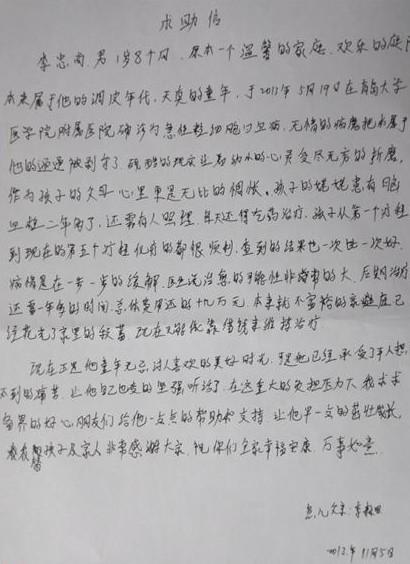 求助信
李忠尚，男，1岁8个月，原本一个温馨的家庭，欢乐的
本来属于他的调皮年代，天真的童年，于2013年5月19日在青岛大学
医学院附属医院确诊为急性粒细胞白血病，无情的病魔把本属于
他的逍遥被剥夺了，残酷的现实让着幼小的心灵受尽无穷的折磨，
作为孩子的父母心里更是无比的惆怅，孩子的患有脑
血栓二年多了，还需有人照理，每天还得吃药治疗，孩子从第一个疗程
到现在的第五个疗程化疗的都很顺利，查到的结果也一次比一次好，
病情是在一步一步的缓解，医生说治愈的可能性非常的大，后期治疗
还要一年多的时间，总体费用还的十九万元，本来就不富裕的家庭已
经花光了家里的积蓄，现在只能依靠借钱来维持治疗
现在正是他童年无忌，讨人喜欢的美好时光，可是他已经承受了常人想
不到的痛苦，让他自己也变的坚强听话了，在这重大的负担压力下，我求求
各界的好心朋友们给他一点点的帮助和支持，让他早一天的茁壮成长，
我孩子及家人非常感谢大家，祝你们全家幸福安康，万事如意。
患儿父亲：李
2013年11月5日